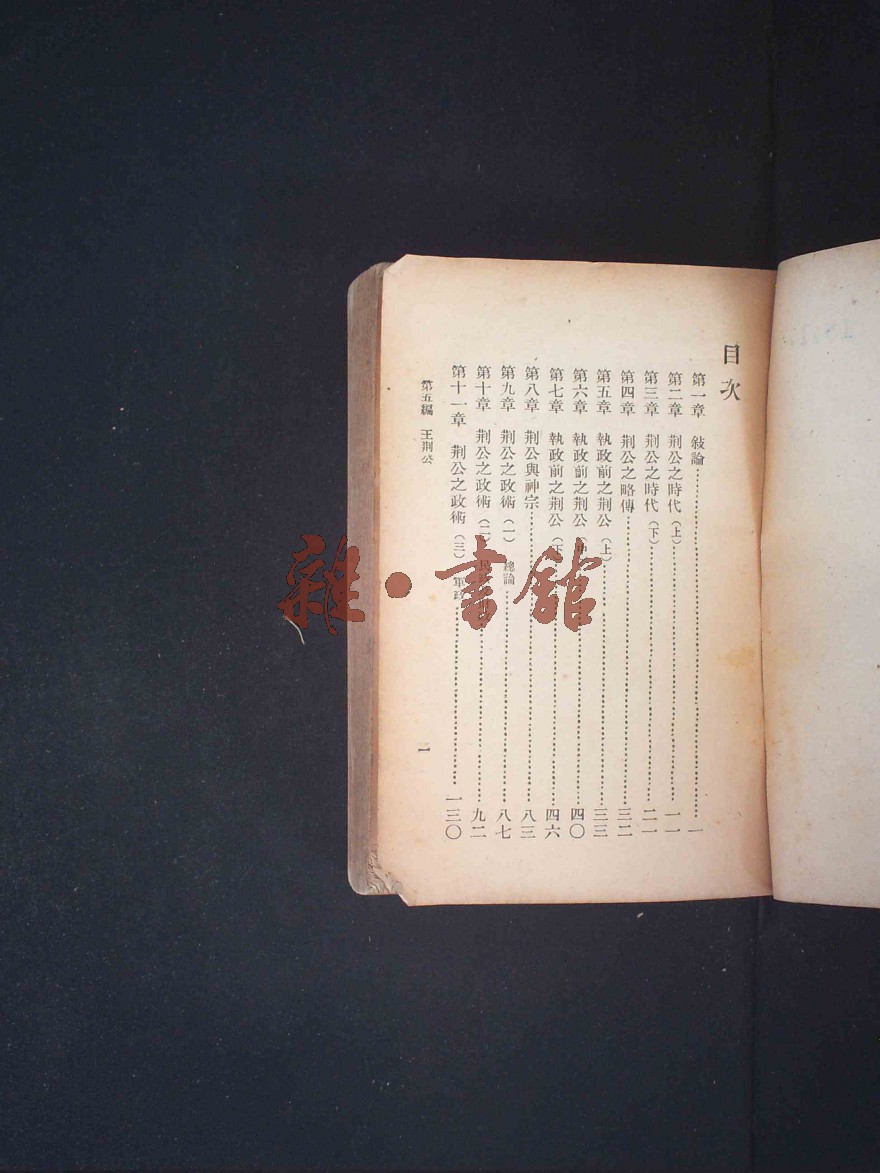 目次
第一章　敍論……一
第二章　荆公之時代（上）……一一
第三章　荆公之時代（下）……二一
第四章　荆公之略傳……三二
第五章　執政前之荆公（上）……三三
第六章　執政前之荆公（中）……四〇
第七章　執政前之荆公（下）……四六
第八章　荆公與神宗……八三
第九章　荆公之政術（一）總論……八七
第十章　荆公之政術（二）……九二
第十一章　荆公之政術（三）軍政……一三〇
第五編　王荆公
一
雜·書館